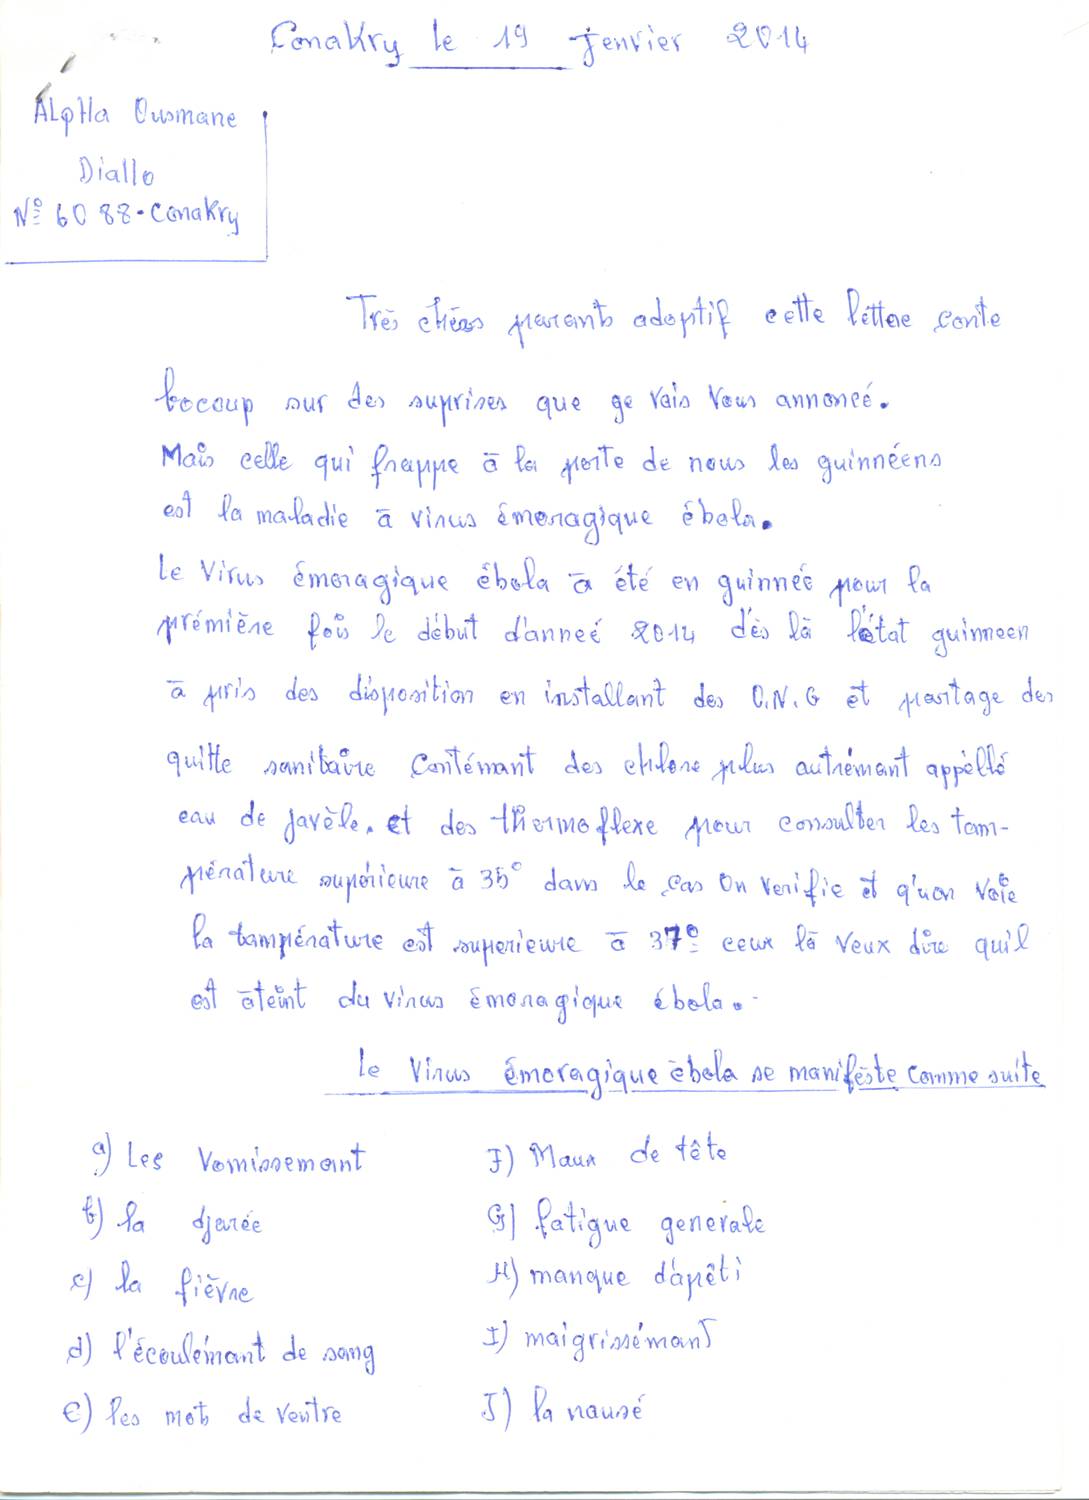 Conakry le 19 Jenvier 2014
ALpHa Ousmane
Diallo
N° 60 88 - Conakry
Très chèrs parants adoptif cette lettre conte
bocoup sur des suprises que ge vais vous annoncé.
Mais celle qui frappe à la porte de nous les guinnéens
est la maladie à virus émoragique ébola.
Le Virus émoragique ébola à été en guinneé pour la
prémière fois le début d'anneé 2014 dès là l'état guinneen
à pris des disposition en installant des O.N.G et partage des
quitte sanitaire contémant des chlore plus autrémant appéllé
eau de javèle. et des thermoflexe pour consulter les tam-
pérature supérieure à 35° dans le cas on verifie et q'uon voie
la tampérature est superieure à 37° ceux là veux dire qu'il
est àteint du virus émoragique ébola.
le Virus émoragique ébola se manifèste comme suite
a) Les vomissemant
b) la djarée
c) la fièvre
d) l'écoulémant de sang
e) les mots de ventre
F) Maux de tête
G) fatigue generale
H) manque d'apêti
I) maigrissémant
J) la nausé